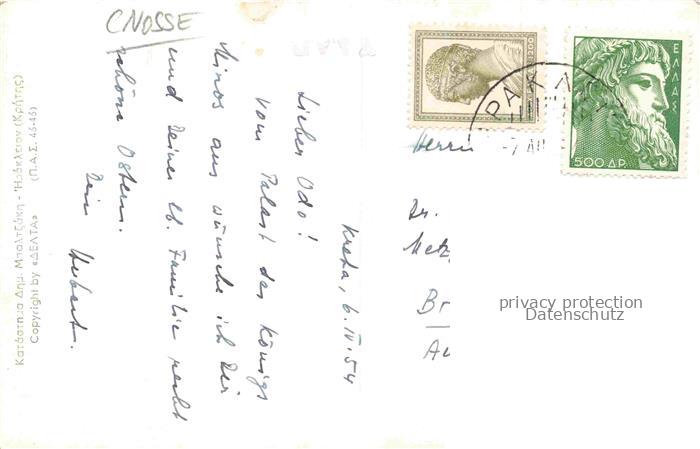 CNOSSE
Kreta, 6.IV.54
Lieber Odo!
Vom Palast des Königs
Minos aus wünsche ich Dir
und Deiner lb. Familie recht
schöne Ostern.
Dein Hubert.
Κατάστημα Δημ. Μπαλτζάκη - Ἡράκλειον (Κρήτης)
Copyright by «ΔΕΛΤΑ» (Π.Α.Σ. 45-46)
ΡΑΚΛ
-7 ΑΠ
ΕΛΛΑΣ
500 ΔΡ.
Herrn
Dr.
Metz
Br
Au
privacy protection
Datenschutz